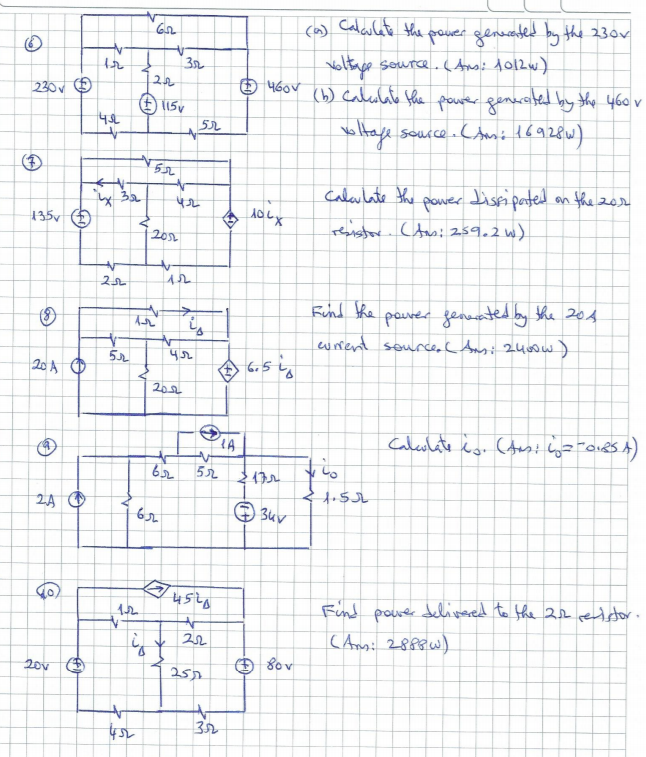 ⑥
6Ω
1Ω
3Ω
2Ω
230v
115v
460v
4Ω
5Ω
(a) Calculate the power generated by the 230v
voltage source. (Ans: 1012w)
(b) Calculate the power generated by the 460v
voltage source. (Ans: 16928w)
⑦
5Ω
ix 3Ω
4Ω
135v
20Ω
10ix
2Ω
1Ω
Calculate the power dissipated on the 20Ω
resistor. (Ans: 259.2w)
⑧
1Ω
iΔ
5Ω
4Ω
20A
20Ω
6.5iΔ
Find the power generated by the 20A
current source. (Ans: 2400w)
⑨
1A
6Ω
5Ω
17Ω
io
2A
6Ω
34v
1.5Ω
Calculate io. (Ans: io=-0.85A)
⑩
45iΔ
1Ω
2Ω
iΔ
20v
25Ω
80v
4Ω
3Ω
Find power delivered to the 2Ω resistor.
(Ans: 2888w)